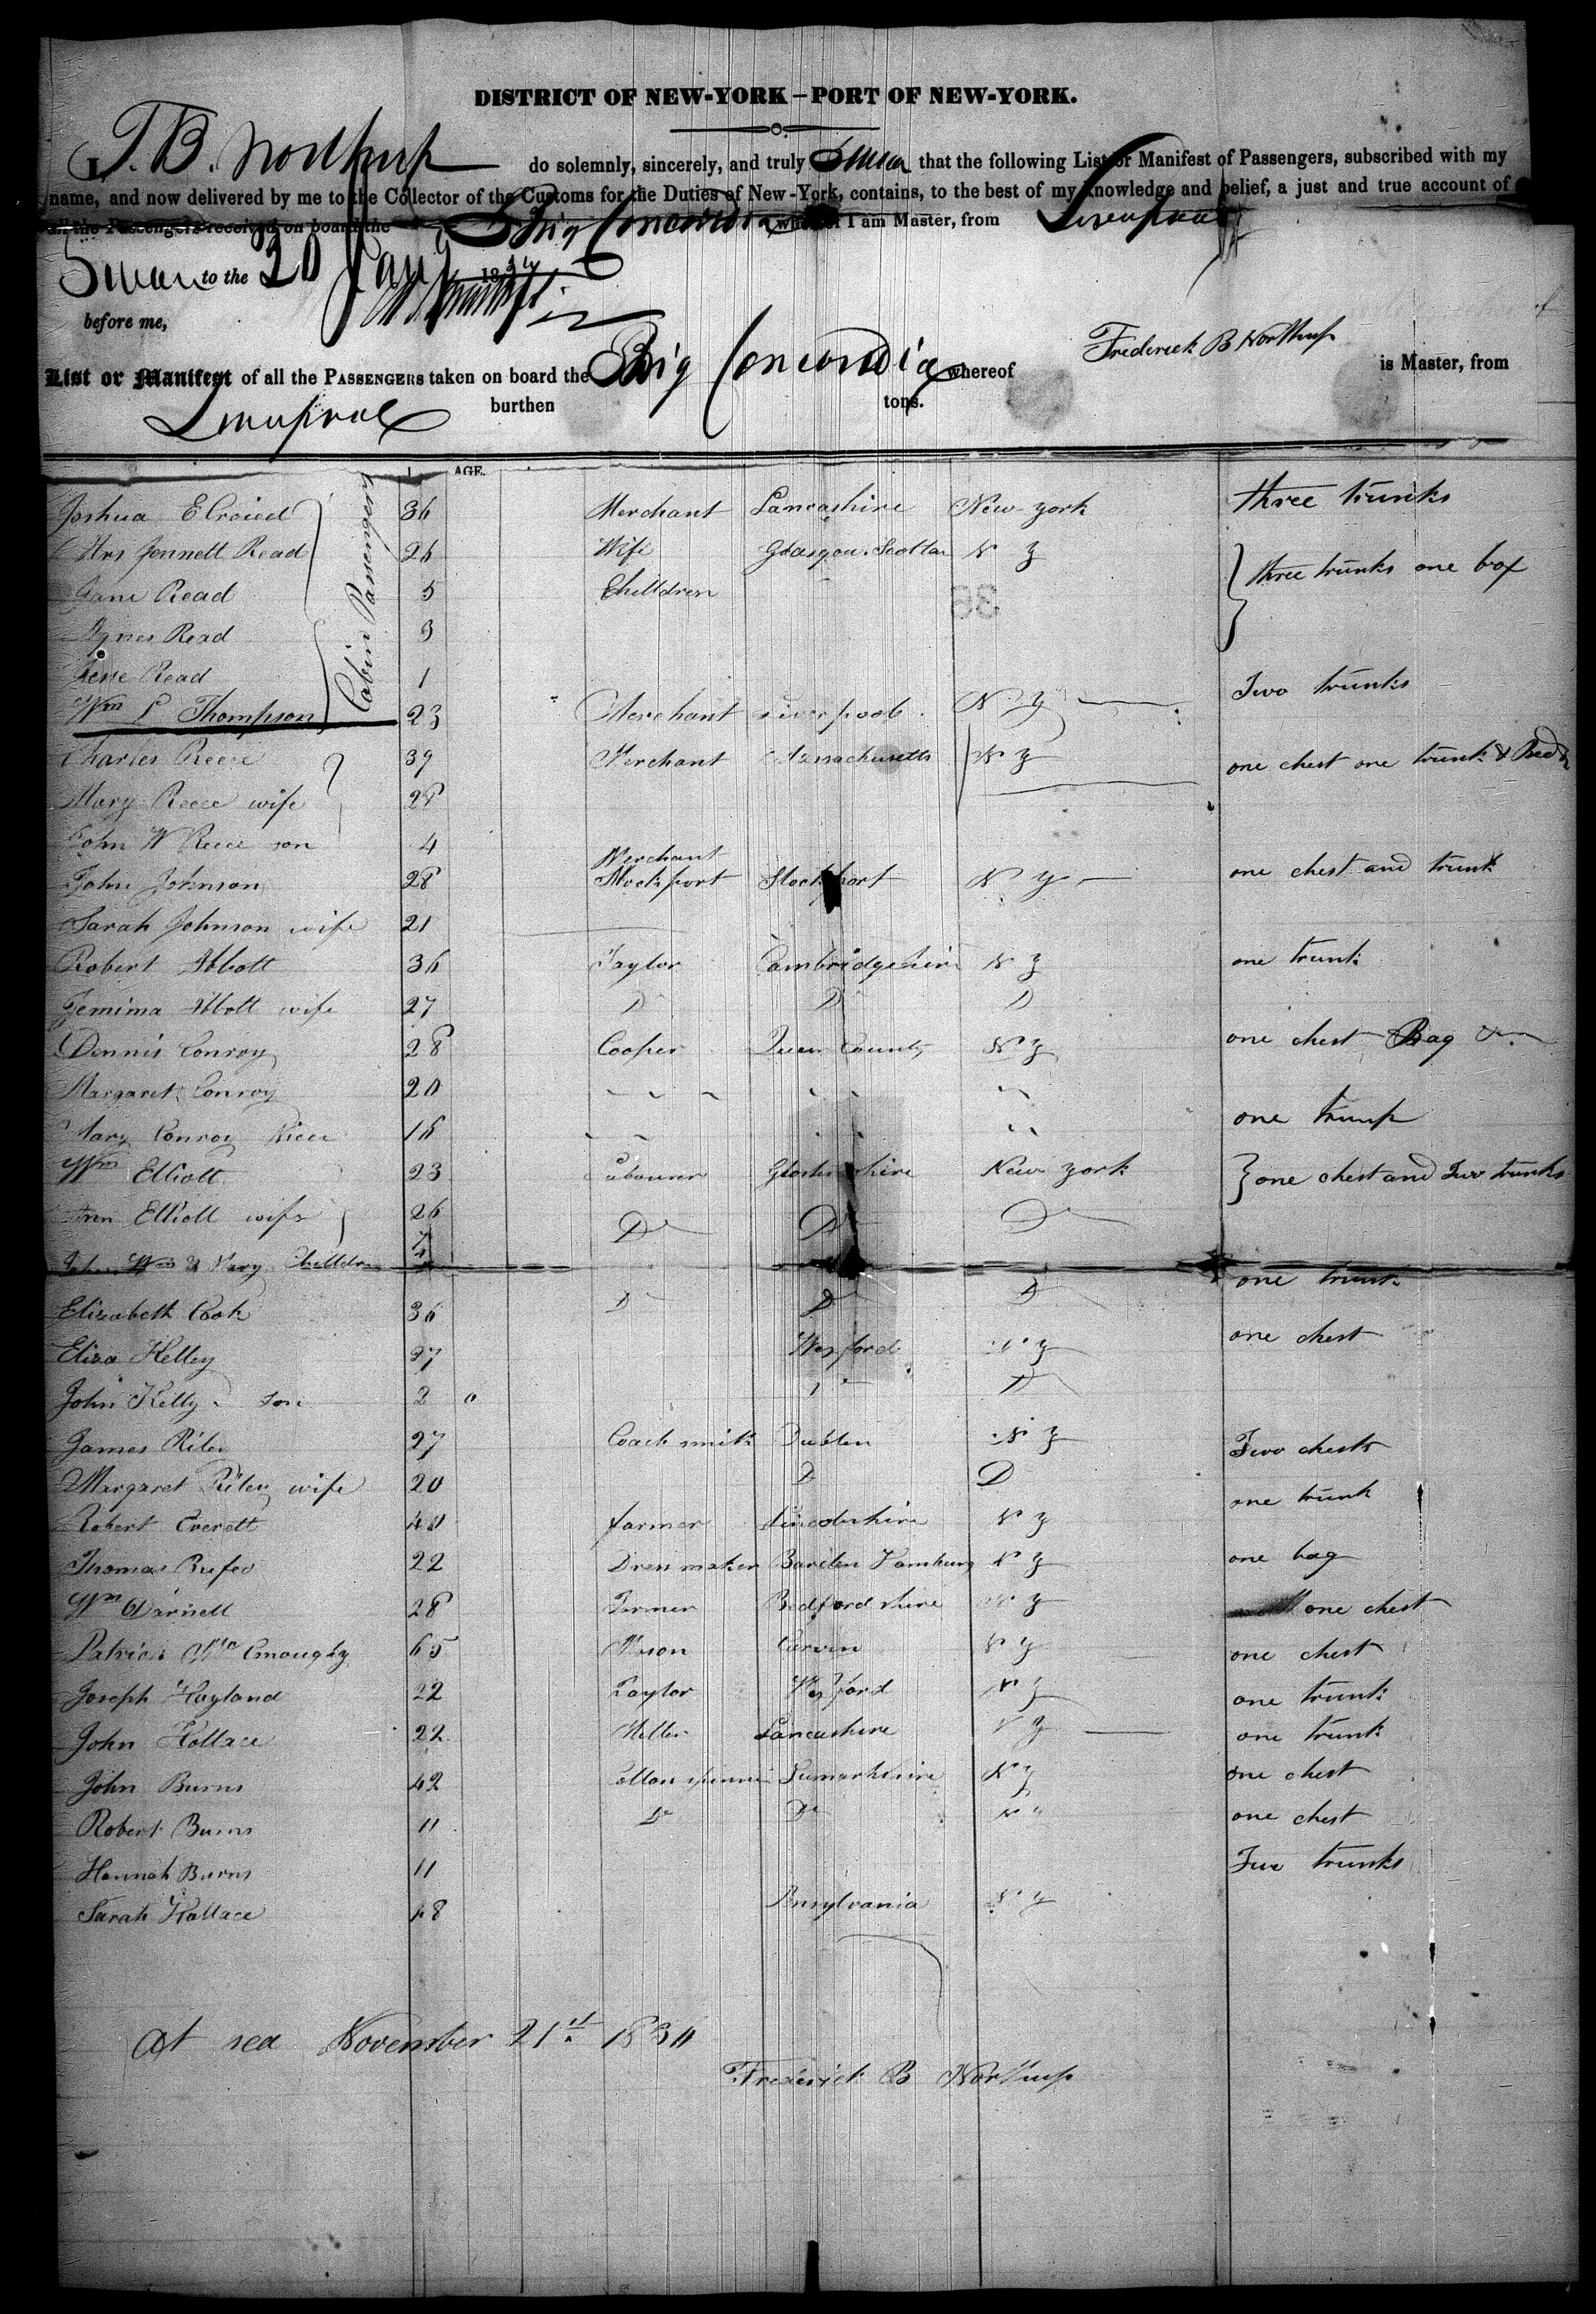 DISTRICT OF NEW-YORK – PORT OF NEW-YORK.
I, F.B. Northrup do solemnly, sincerely, and truly Swear that the following List or Manifest of Passengers, subscribed with my
name, and now delivered by me to the Collector of the Customs for the Duties of New-York, contains, to the best of my knowledge and belief, a just and true account of
all the Passengers received on board the Brig Concordia whereof I am Master, from Liverpool
Sworn to the 20 Jany 1834
before me,
Frederick B Northup
List or Manifest of all the PASSENGERS taken on board the Brig Concordia whereof is Master, from
Liverpool burthen tons.
AGE.
Cabin Passengers
Joshua 36 Merchant Lancashire New York three trunks
Mrs Jennett Read 26 Wife Glasgow Scotlan N Y three trunks one box
Jane Read 5 Chelldren
Agnes Read 3
Jesse Read 1
Wm Thompson 23 Merchant Liverpool N Y Two trunks
Charles Reece 39 Merchant Massachusetts N Y one chest one trunk & Bed
Mary Reece wife 28
John W Reece son 4
Merchant
John Johnson 28 Stockport Stockport N Y one chest and trunk
Sarah Johnson wife 21
Robert Abbott 36 Taylor Cambridgeshire N Y one trunk
Jemima Abbott wife 27 D D D
Dennis Conroy 28 Cooper Queen County N Y one chest Bag &
Margaret Conroy 20
Mary Conroy Niece 16 one trunk
Wm Elliott 23 Labourer Glostershire New York one chest and Two trunks
Ann Elliott wife 26 D D D
John Wm & Mary Chelldren 7 4
Elizabeth Cook 36 D D D one trunk
Eliza Kelley 27 Wexford N Y one chest
John Kelly son 2 D
James Riley 27 Coach smith Dublen N Y Two chests
Margaret Riley wife 20 D D one trunk
Robert Everett 40 farmer Lincolnshire N Y
Thomas 22 Dress maker N Y one bag
Wm Darnell 28 Farmer Bedfordshire N Y one chest
Patrick Mc Cnoughy 65 Mason N Y one chest
Joseph Hayland 22 Taylor Wexford N Y one trunk
John Hollace 22 Miller Lancashire N Y one trunk
John Burns 42 Cotton spinner N Y one chest
Robert Burns 11 Do Do N " one chest
Hannah Burns 11 Two trunks
Sarah Hollace 48 Pnsylvania N Y
At sea November 21st 1834
Frederick B Northup